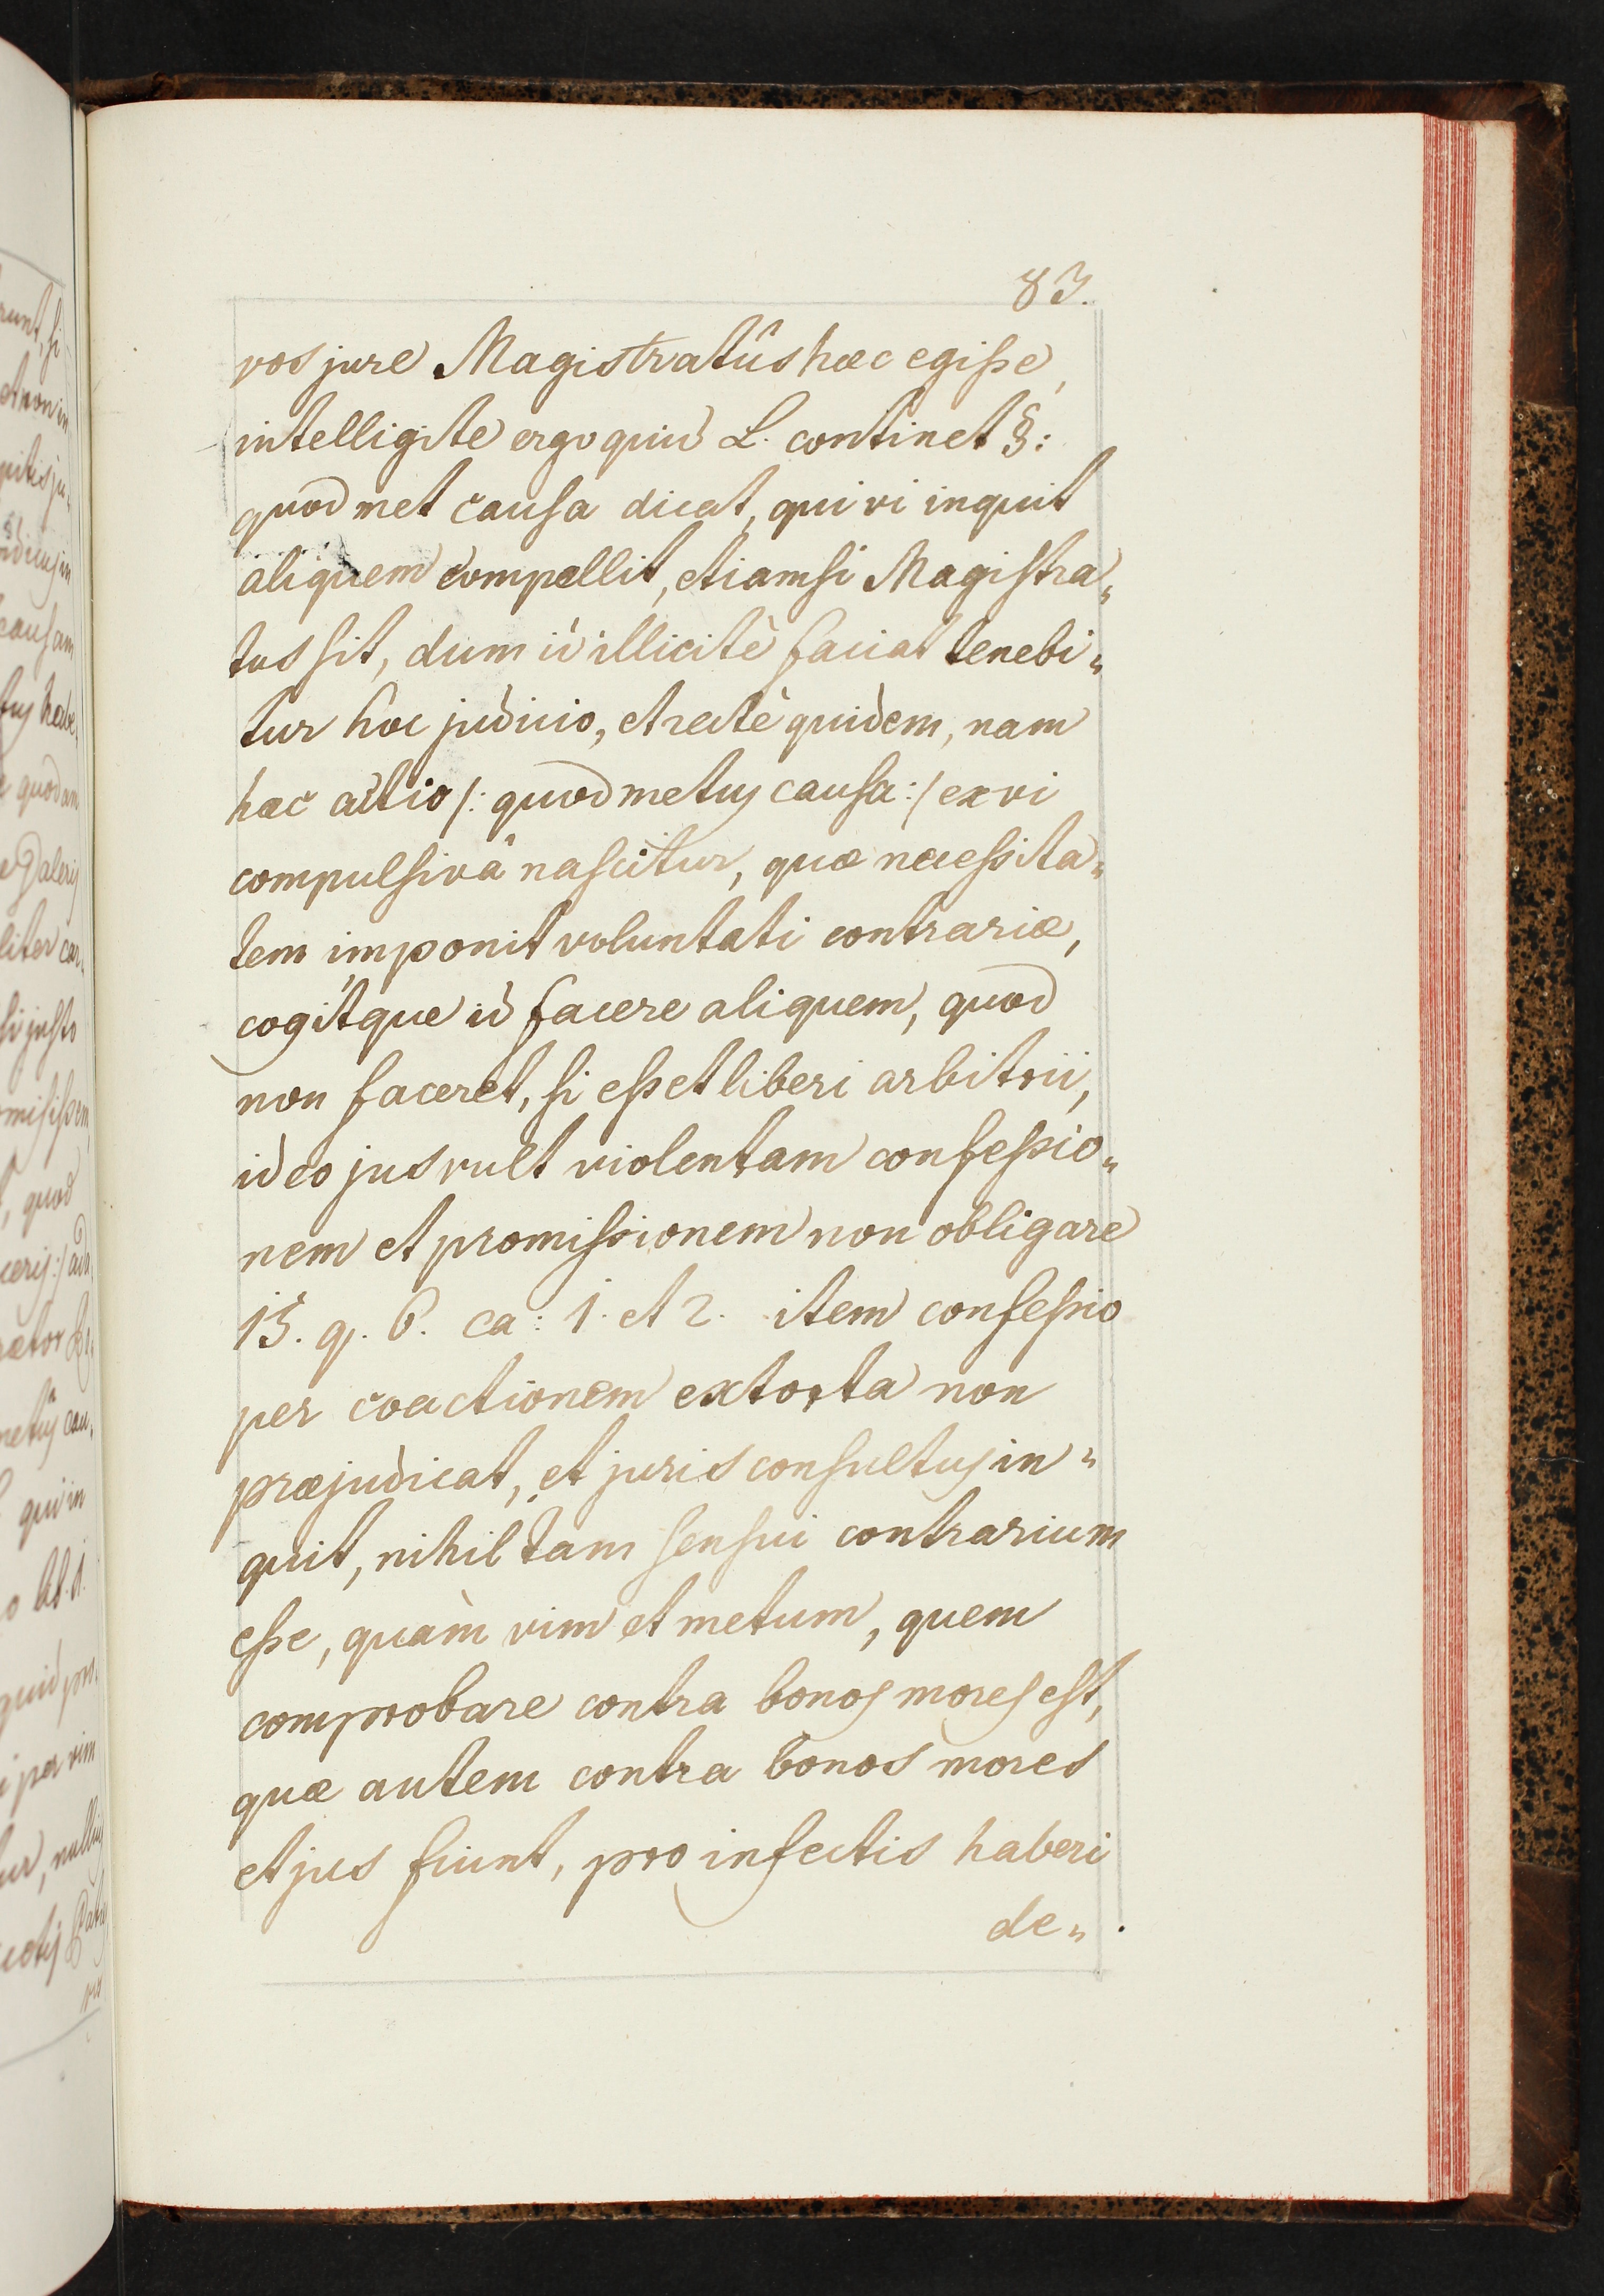 83.
vos jure Magistratûs hæc egiſse,
intelligite ergo quid L. continet §:
quod met causa dicat, qui vi inquit
aliquem compellit, etiamsi Magistra„
tus sit, dum id illicitè faciat tenebi„
tur hoc judicio, et rectè quidem, nam
hæc actio /: quod metus causa :/ ex vi
compulsivâ nascitur, quæ neceſsita„
tem imponit voluntati contrariæ,
cogitque id facere aliquem, quod
non faceret, si eſset liberi arbitrii,
ideo jus vult violentam confeſsio„
nem et promiſsionem non obligare
15. q. 6. ca: 1. et 2. item confeſsio
per coactionem extorta non
præjudicat, et juris consultus in„
quit, nihil tam sensui contrarium
eſse, quàm vim et metum, quem
comprobare contra bonos mores est,
quæ autem contra bonos mores
et jus fiunt, pro infectis haberi
de„